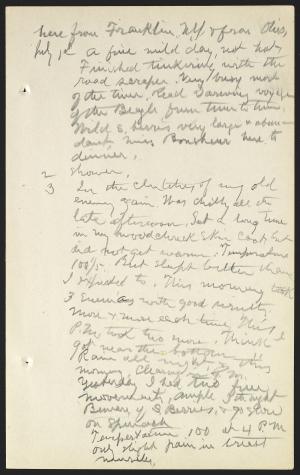 here from Franklin, N.Y. & from Ohio,
July 1st A fine mild day, not hot,
Finished tinkering with the
road scraper. Very busy most
of the time. Read Darwins voyage
of the Beagle from time to time.
Wild S. berries very large & abun-
dant. Miss here to
dinner.
2 Shower,
3 In the clutches of my old
enemy again. Was chilly all the
late afternoon. Sat a long time
in my woodchuck skin coat but
did not get warm. Temperature
100½. But slept better than
I expected to. This morning took
3 Enemas with good results
more & more each time. This
P.M. took two more. Think I
got near the bottom this
Rain all night & this
morning, Clearing P.M.
Yesterday I had two fine
movements, ample I thought
Beware of S Berries, & go slow
on Spinach
Temperature 100 at 4 P.M
only slight pain in